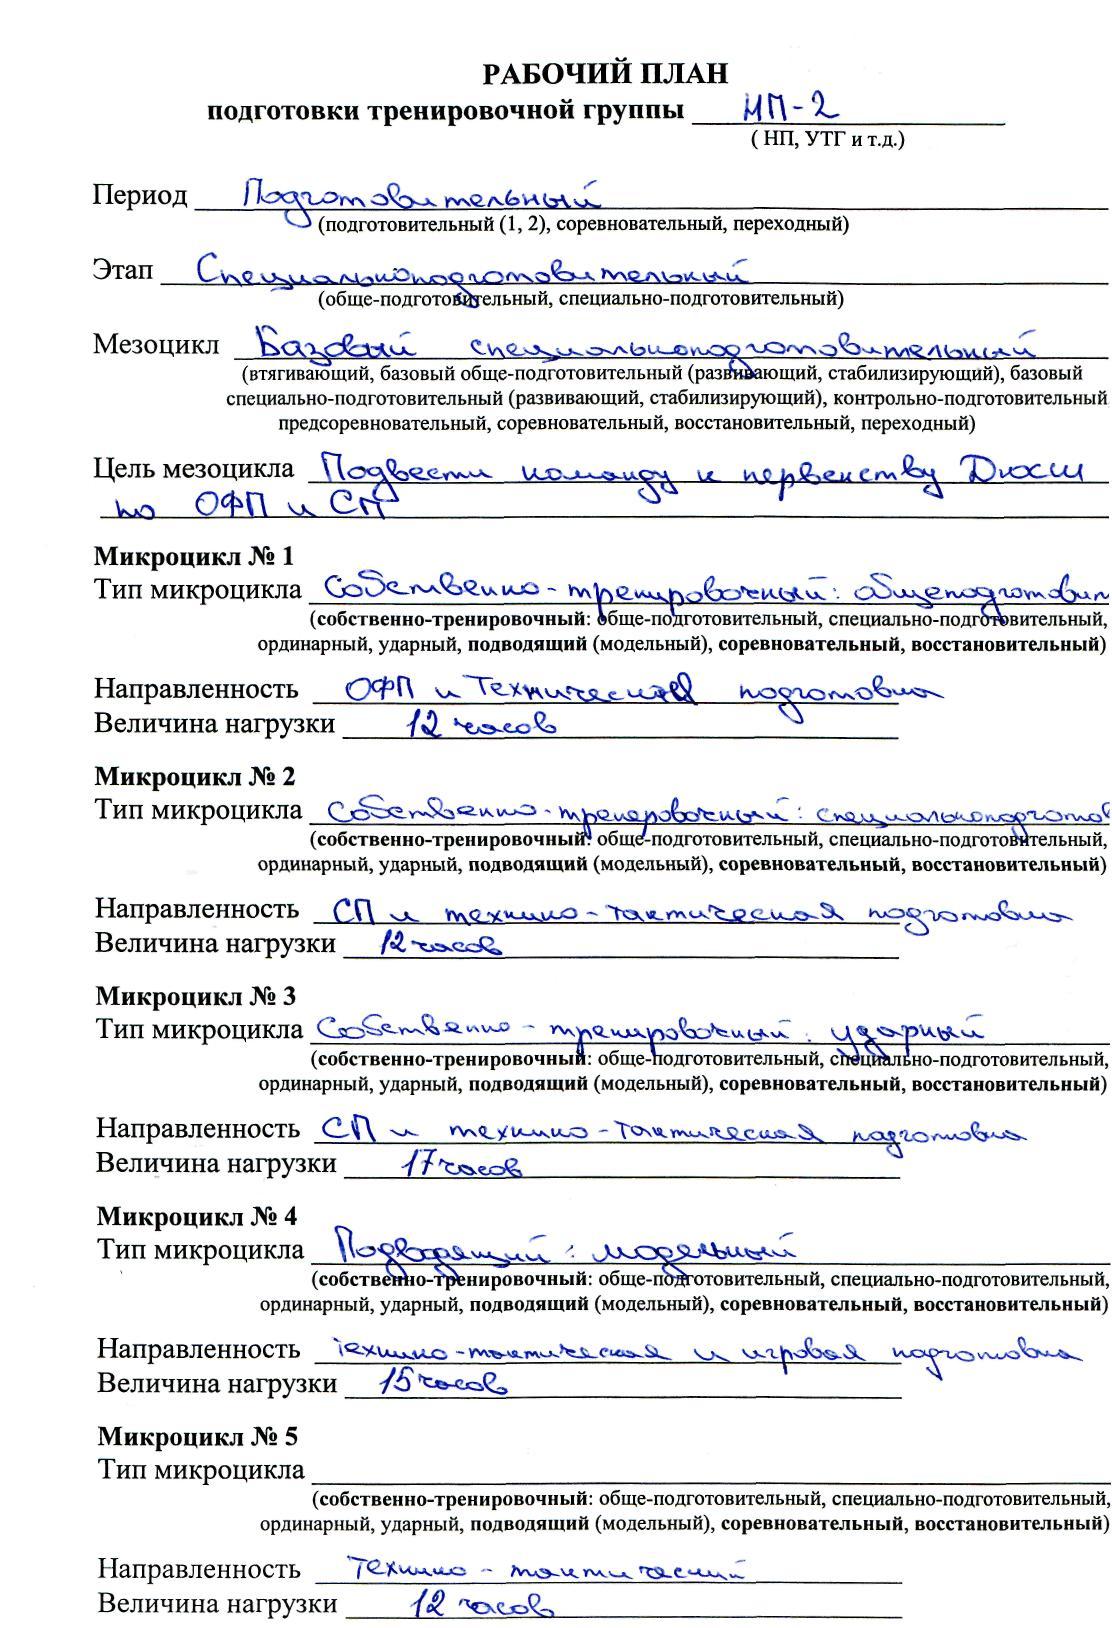 РАБОЧИЙ ПЛАН
подготовки тренировочной группы НП-2
( НП, УТГ и т.д.)
Период Подготовительный
(подготовительный (1, 2), соревновательный, переходный)
Этап Специальноподготовительный
(обще-подготовительный, специально-подготовительный)
Мезоцикл Базовый специальноподготовительный
(втягивающий, базовый обще-подготовительный (развивающий, стабилизирующий), базовый
специально-подготовительный (развивающий, стабилизирующий), контрольно-подготовительный
предсоревновательный, соревновательный, восстановительный, переходный)
Цель мезоцикла Подвести команду к первенству Дюсш
по ОФП и СП
Микроцикл № 1
Тип микроцикла Собственно-тренировочный: общеподготовит
(собственно-тренировочный: обще-подготовительный, специально-подготовительный,
ординарный, ударный, подводящий (модельный), соревновательный, восстановительный)
Направленность ОФП и Техническая подготовка
Величина нагрузки 12 часов
Микроцикл № 2
Тип микроцикла Собственно-тренеровочный: специальноподготов
(собственно-тренировочный: обще-подготовительный, специально-подготовительный,
ординарный, ударный, подводящий (модельный), соревновательный, восстановительный)
Направленность СП и технико-тактическая подготовка
Величина нагрузки 12 часов
Микроцикл № 3
Тип микроцикла Собственно-тренировочный: ударный
(собственно-тренировочный: обще-подготовительный, специально-подготовительный,
ординарный, ударный, подводящий (модельный), соревновательный, восстановительный)
Направленность СП и технико-тактическая подготовка
Величина нагрузки 17 часов
Микроцикл № 4
Тип микроцикла Подводящий: модельный
(собственно-тренировочный: обще-подготовительный, специально-подготовительный,
ординарный, ударный, подводящий (модельный), соревновательный, восстановительный)
Направленность Технико-тактическая и игровая подготовка
Величина нагрузки 15 часов
Микроцикл № 5
Тип микроцикла
(собственно-тренировочный: обще-подготовительный, специально-подготовительный,
ординарный, ударный, подводящий (модельный), соревновательный, восстановительный)
Направленность Технико-тактический
Величина нагрузки 12 часов